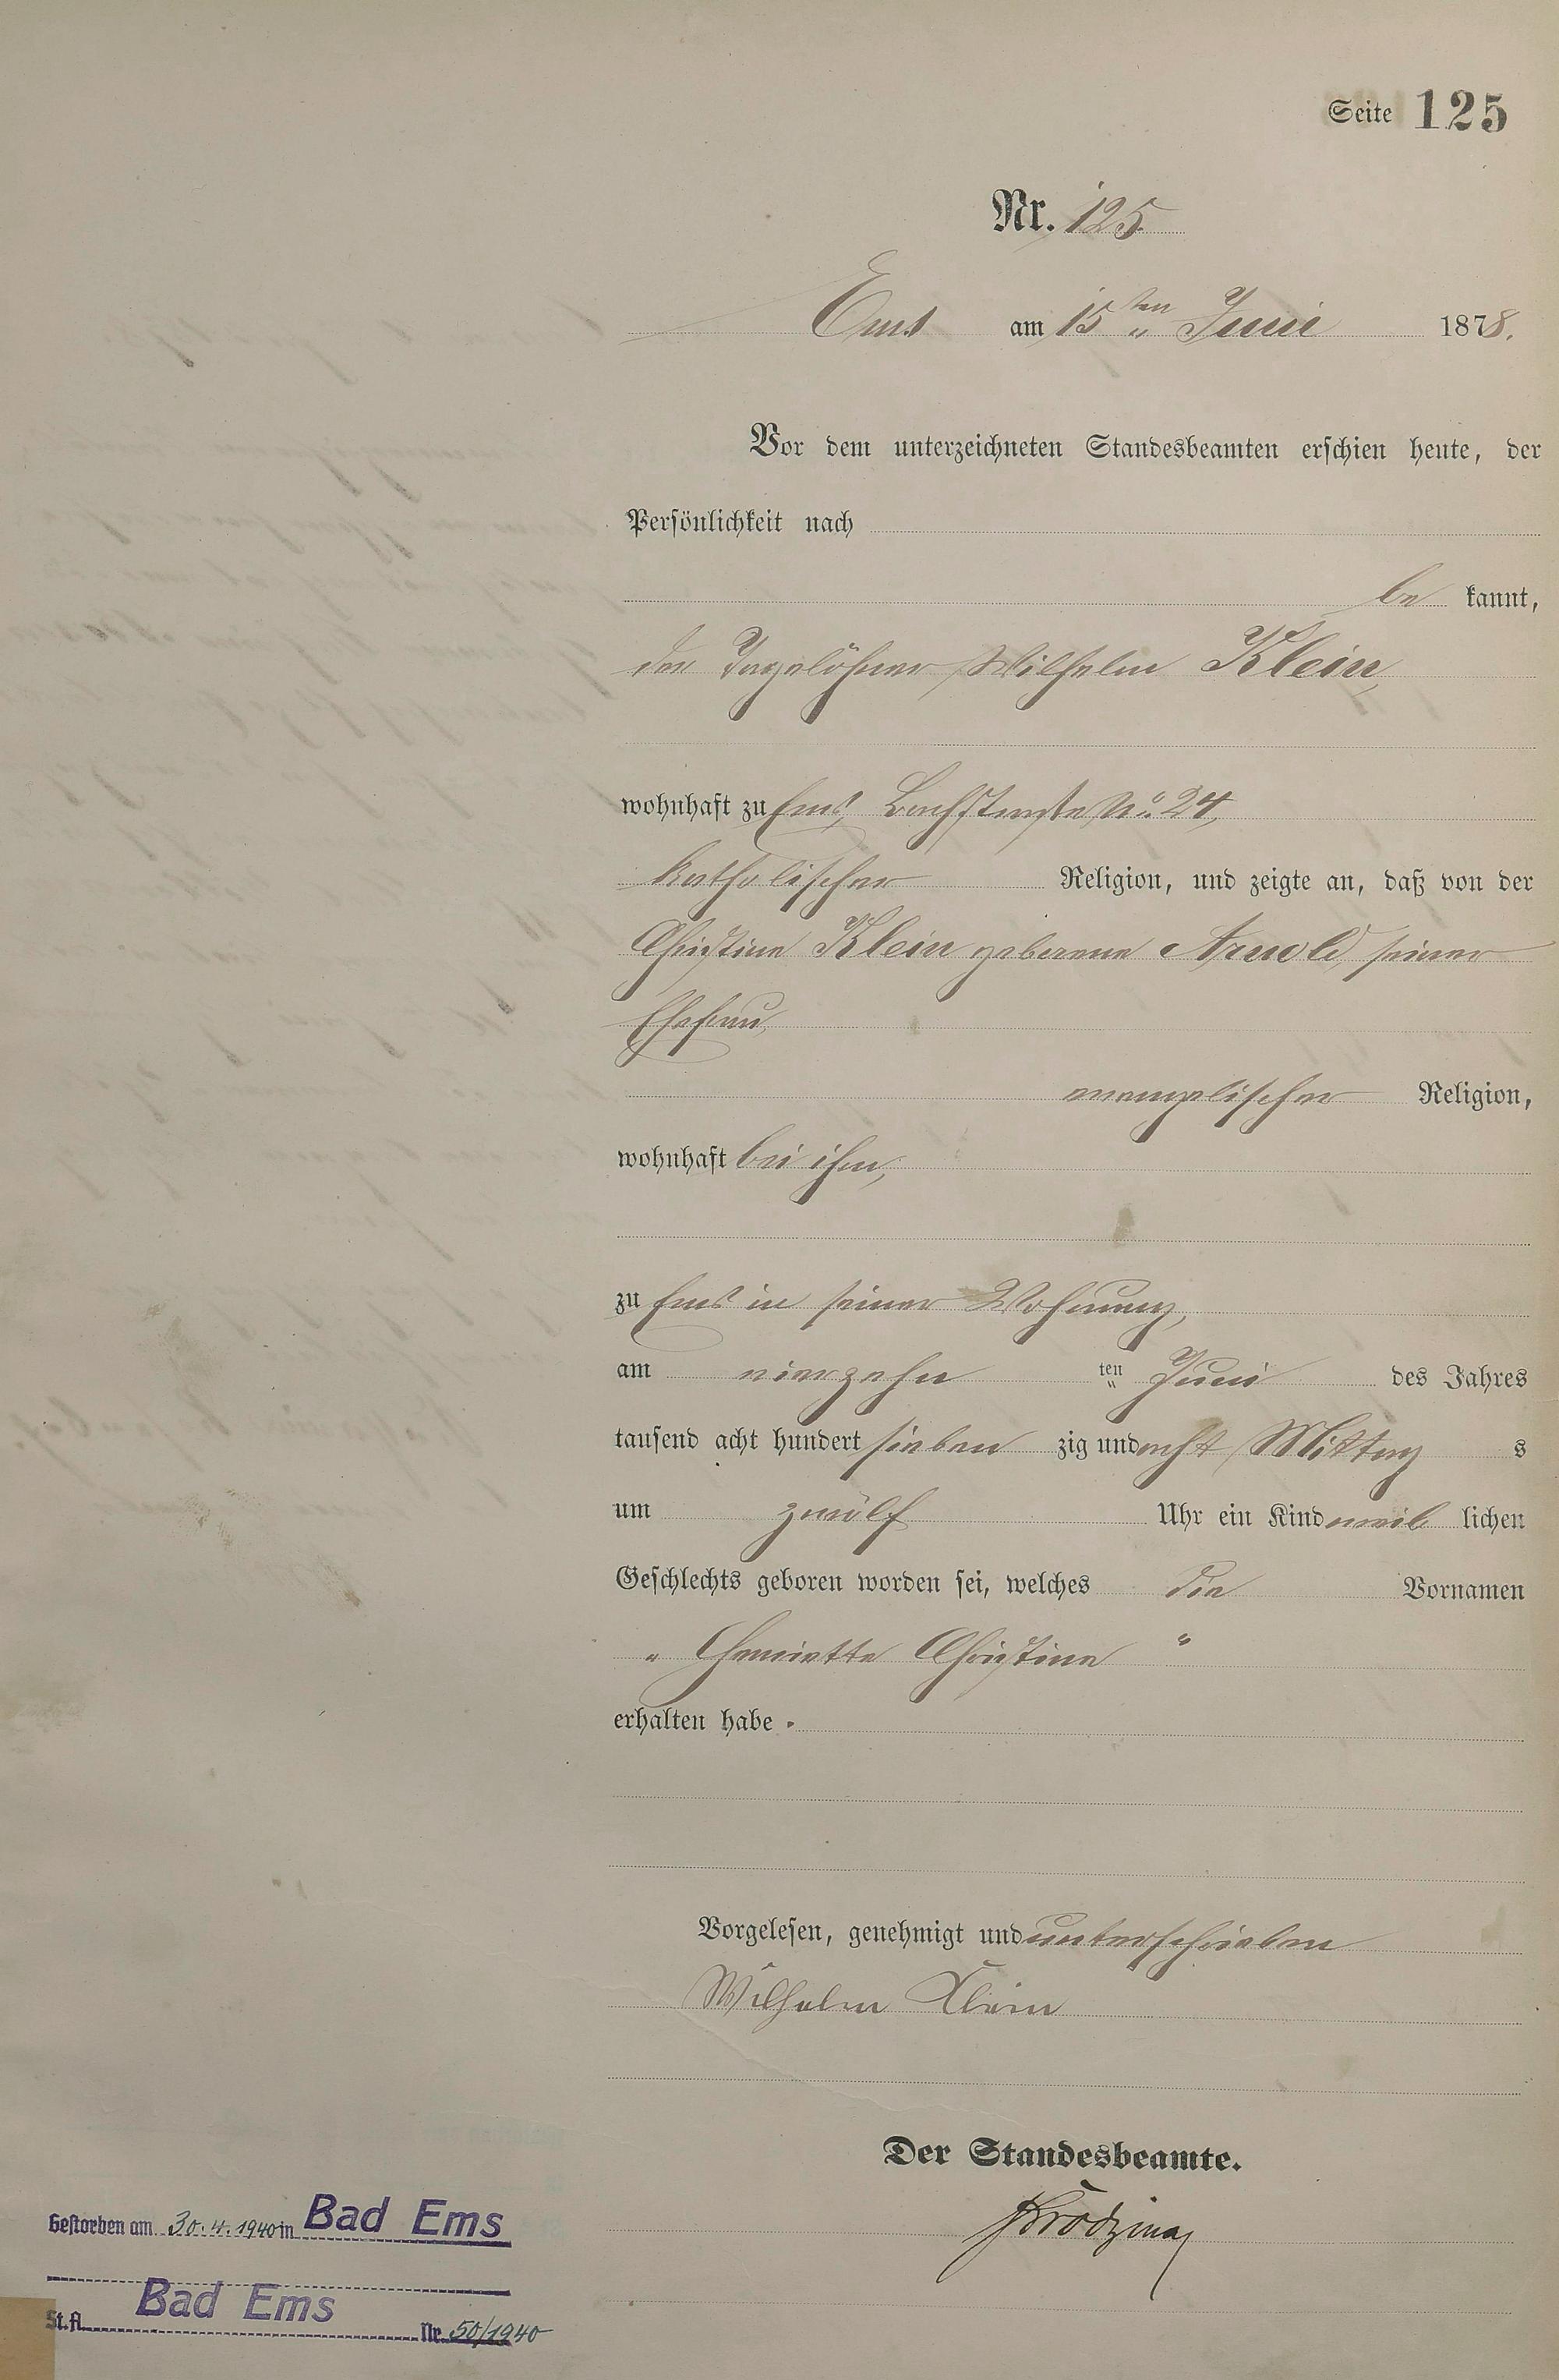 Seite 125
Nr. 125.
Ems am 15ten Juni 1878.
Vor dem unterzeichneten Standesbeamten erschien heute, der
Persönlichkeit nach
be kannt,
der Tagelöhner Wilhelm Klein,
wohnhaft zu Ems, Bachstraße No. 24,
katholischer Religion, und zeigte an, daß von der
Christine Klein geborene Arnold, seiner
Ehefrau,
evangelischer Religion,
wohnhaft bei ihm,
zu Ems in seiner Wohnung,
am vierzehn ten Juni des Jahres
tausend acht hundert sieben zig und acht Mittag s
um zwölf Uhr ein Kind weib lichen
Geschlechts geboren worden sei, welches die Vornamen
" Henriette Christine "
erhalten habe.
Vorgelesen, genehmigt und unterschrieben
Wilhelm Klein
Der Standesbeamte.
Gestorben am 30.4.1940 in Bad Ems
St.A. Bad Ems Nr. 50/1940